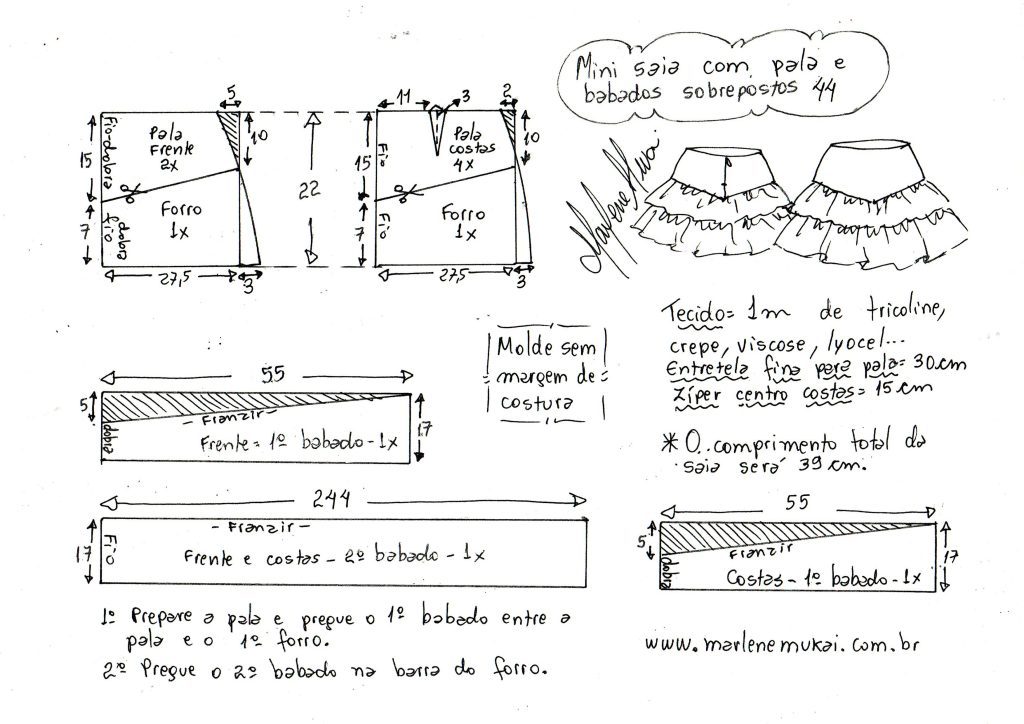 Mini saia com pala e
babados sobrepostos 44
Marlene Mukai
5
Fio-dobra
Pala
Frente
2x
10
15
22
Forro
1x
7
fio
dobra
27,5
3
11
3
2
Fio
Pala
costas
4x
10
15
Fio
Forro
1x
7
27,5
3
Tecido = 1m de tricoline,
crepe, viscose, lyocel...
Entretela fina para pala = 30cm
Zíper centro costas = 15cm
* O comprimento total da
saia será 39 cm.
Molde sem
margem de
costura
55
5
- Franzir -
dobra
Frente = 1º babado - 1x
17
244
- Franzir -
17
Fio
Frente e costas - 2º babado - 1x
55
5
Franzir
dobra
Costas - 1º babado - 1x
17
1º Prepare a pala e pregue o 1º babado entre a
pala e o 1º forro.
2º Pregue o 2º babado na barra do forro.
www.marlenemukai.com.br